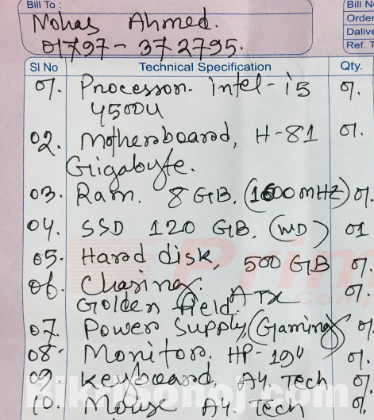 Bill To :
Bill N
Mohas Ahmed.
Order
01797-372795.
Deliv
Ref. T
Sl No Technical Specification Qty.
01. Processor. intel-i5 01.
4500U
02. Motherboard, H-81 01.
Gigabyte.
03. Ram. 8 GB. (1600 MHZ) 01.
04. SSD 120 GB. (WD) 01
05. Hard disk, 500 GB 01.
06. Chasing. ATX 01.
Golden field.
07. Power Supply (Gaming) 01.
08- Monitor. HP-19" 01.
09 Keyboard A4 Tech 01.
10. Mouse A4 Tech 01.